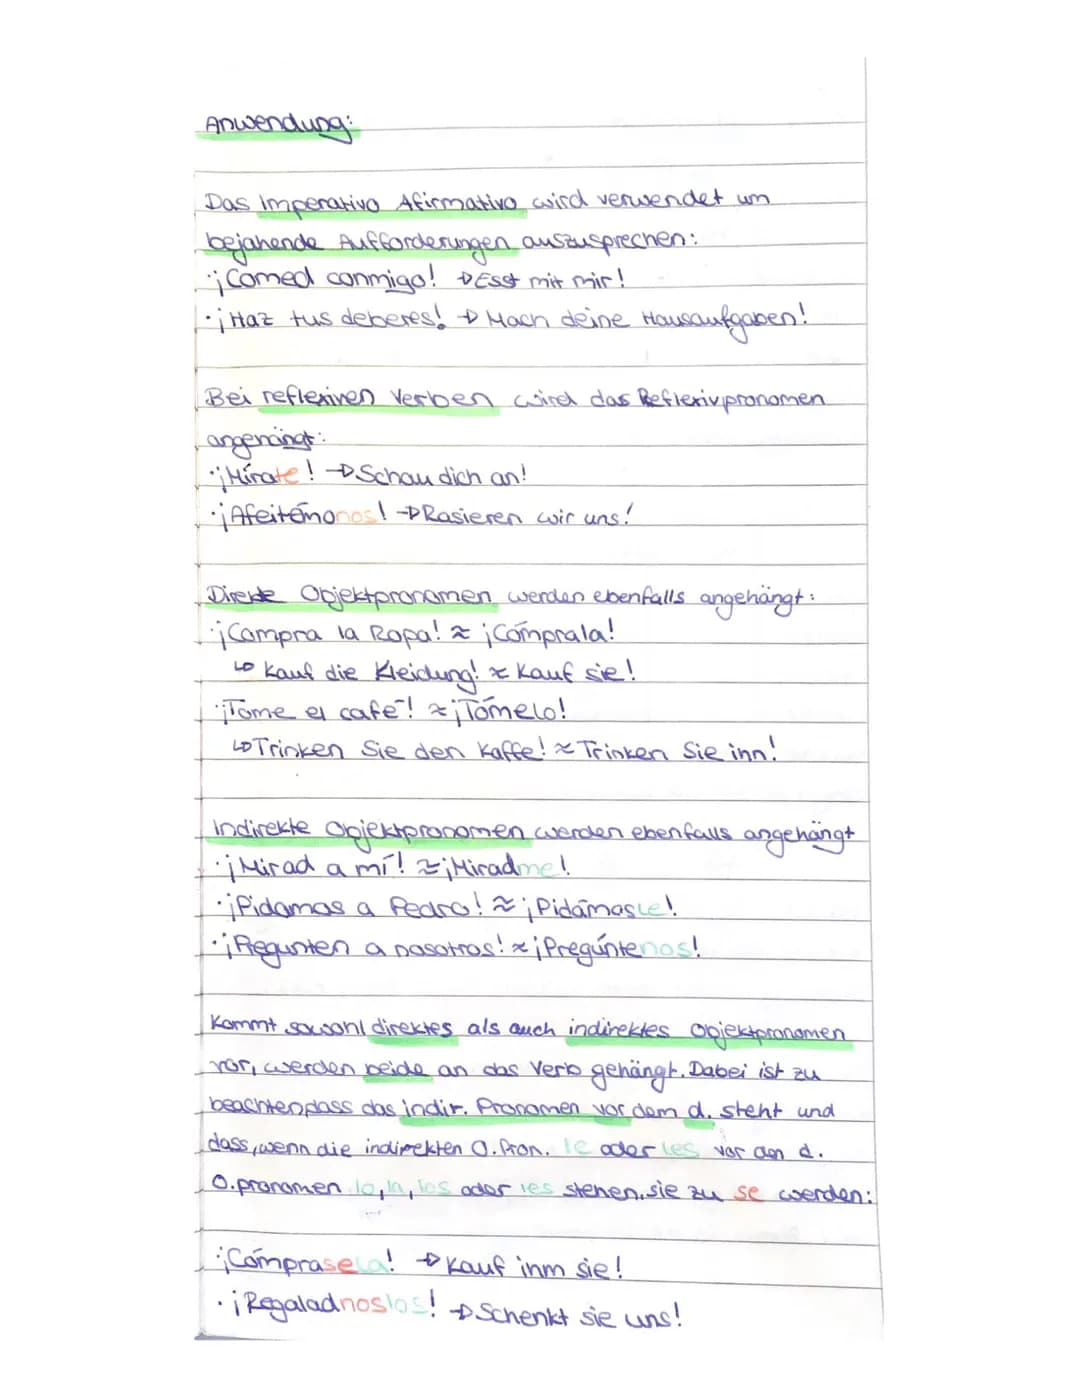 Anwendung:
Das Imperativo Afirmativo wird verwendet um
bejahende Aufforderungen auszusprechen:
·¡Comed conmigo! → Esst mit mir!
·¡Haz tus deberes! → Mach deine Hausaufgaben!
Bei reflexiven Verben wird das Reflexivpronomen
angehängt:
·¡Mírate! → Schau dich an!
·¡Afeitémonos! → Rasieren wir uns!
Direkte Objektpronomen werden ebenfalls angehängt:
·¡Compra la Ropa! ≈ ¡Cómprala!
↳ Kauf die Kleidung! ≈ Kauf sie!
·¡Tome el café! ≈ ¡Tómelo!
↳ Trinken Sie den Kaffe! ≈ Trinken Sie inn!
Indirekte Objektpronomen werden ebenfalls angehängt
·¡Mirad a mí! ≈ ¡Miradme!
·¡Pidamos a Pedro! ≈ ¡Pidámosle!
·¡Pregunten a nosotros! ≈ ¡Pregúntenos!
Kommt sowohl direktes als auch indirektes Objektpronomen
vor, werden beide an das Verb gehängt. Dabei ist zu
beachten, dass das indir. Pronomen vor dem d. steht und
dass, wenn die indirekten O. Pron. le oder les vor den d.
O. pronomen lo, la, los oder les stehen, sie zu se werden:
·¡Cómprasela! → Kauf ihm sie!
·¡Regaladnoslos! → Schenkt sie uns!